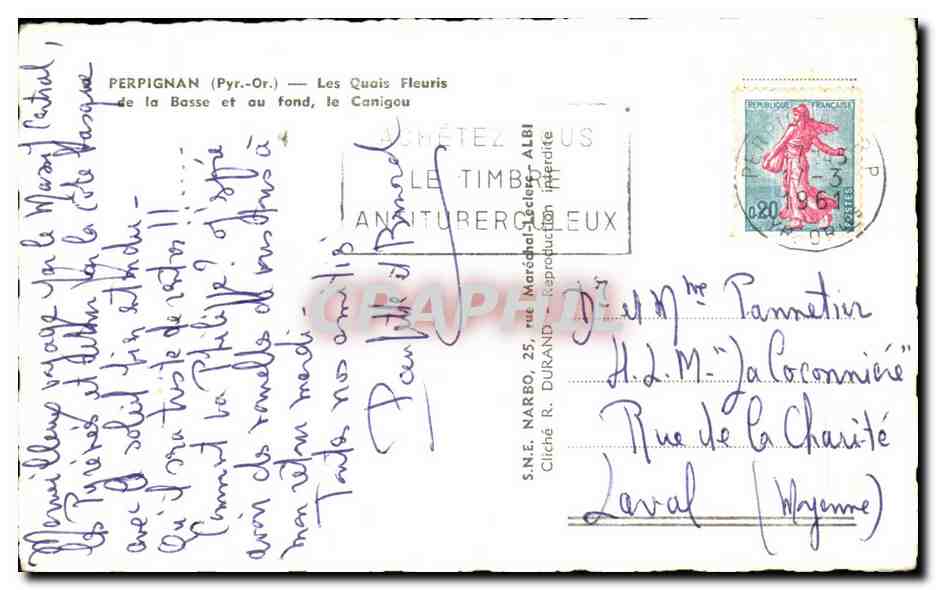 PERPIGNAN (Pyr.-Or.) — Les Quais Fleuris
de la Basse et au fond, le Canigou
Merveilleux voyage par le Massif Central,
les Pyrénées et retour par la Côte Basque
avec du soleil bien entendu -
Qu'il sera triste de rentrer!!....
Comment va Philippe? J'espère
avoir de vos nouvelles dès
mon retour mardi -
Toutes nos amitiés
et Bernard
S.N.E. NARBO, 25, rue Maréchal-Leclerc - ALBI
Cliché R. DURAND Reproduction interdite
ACHETEZ TOUS
LE TIMBRE
ANTITUBERCULEUX
REPUBLIQUE FRANÇAISE
0,20
POSTES
1961
CPARPHIL
Dr et Mme Pannetier
H.L.M. "La Coconnière"
Rue de la Charité
Laval (Mayenne)